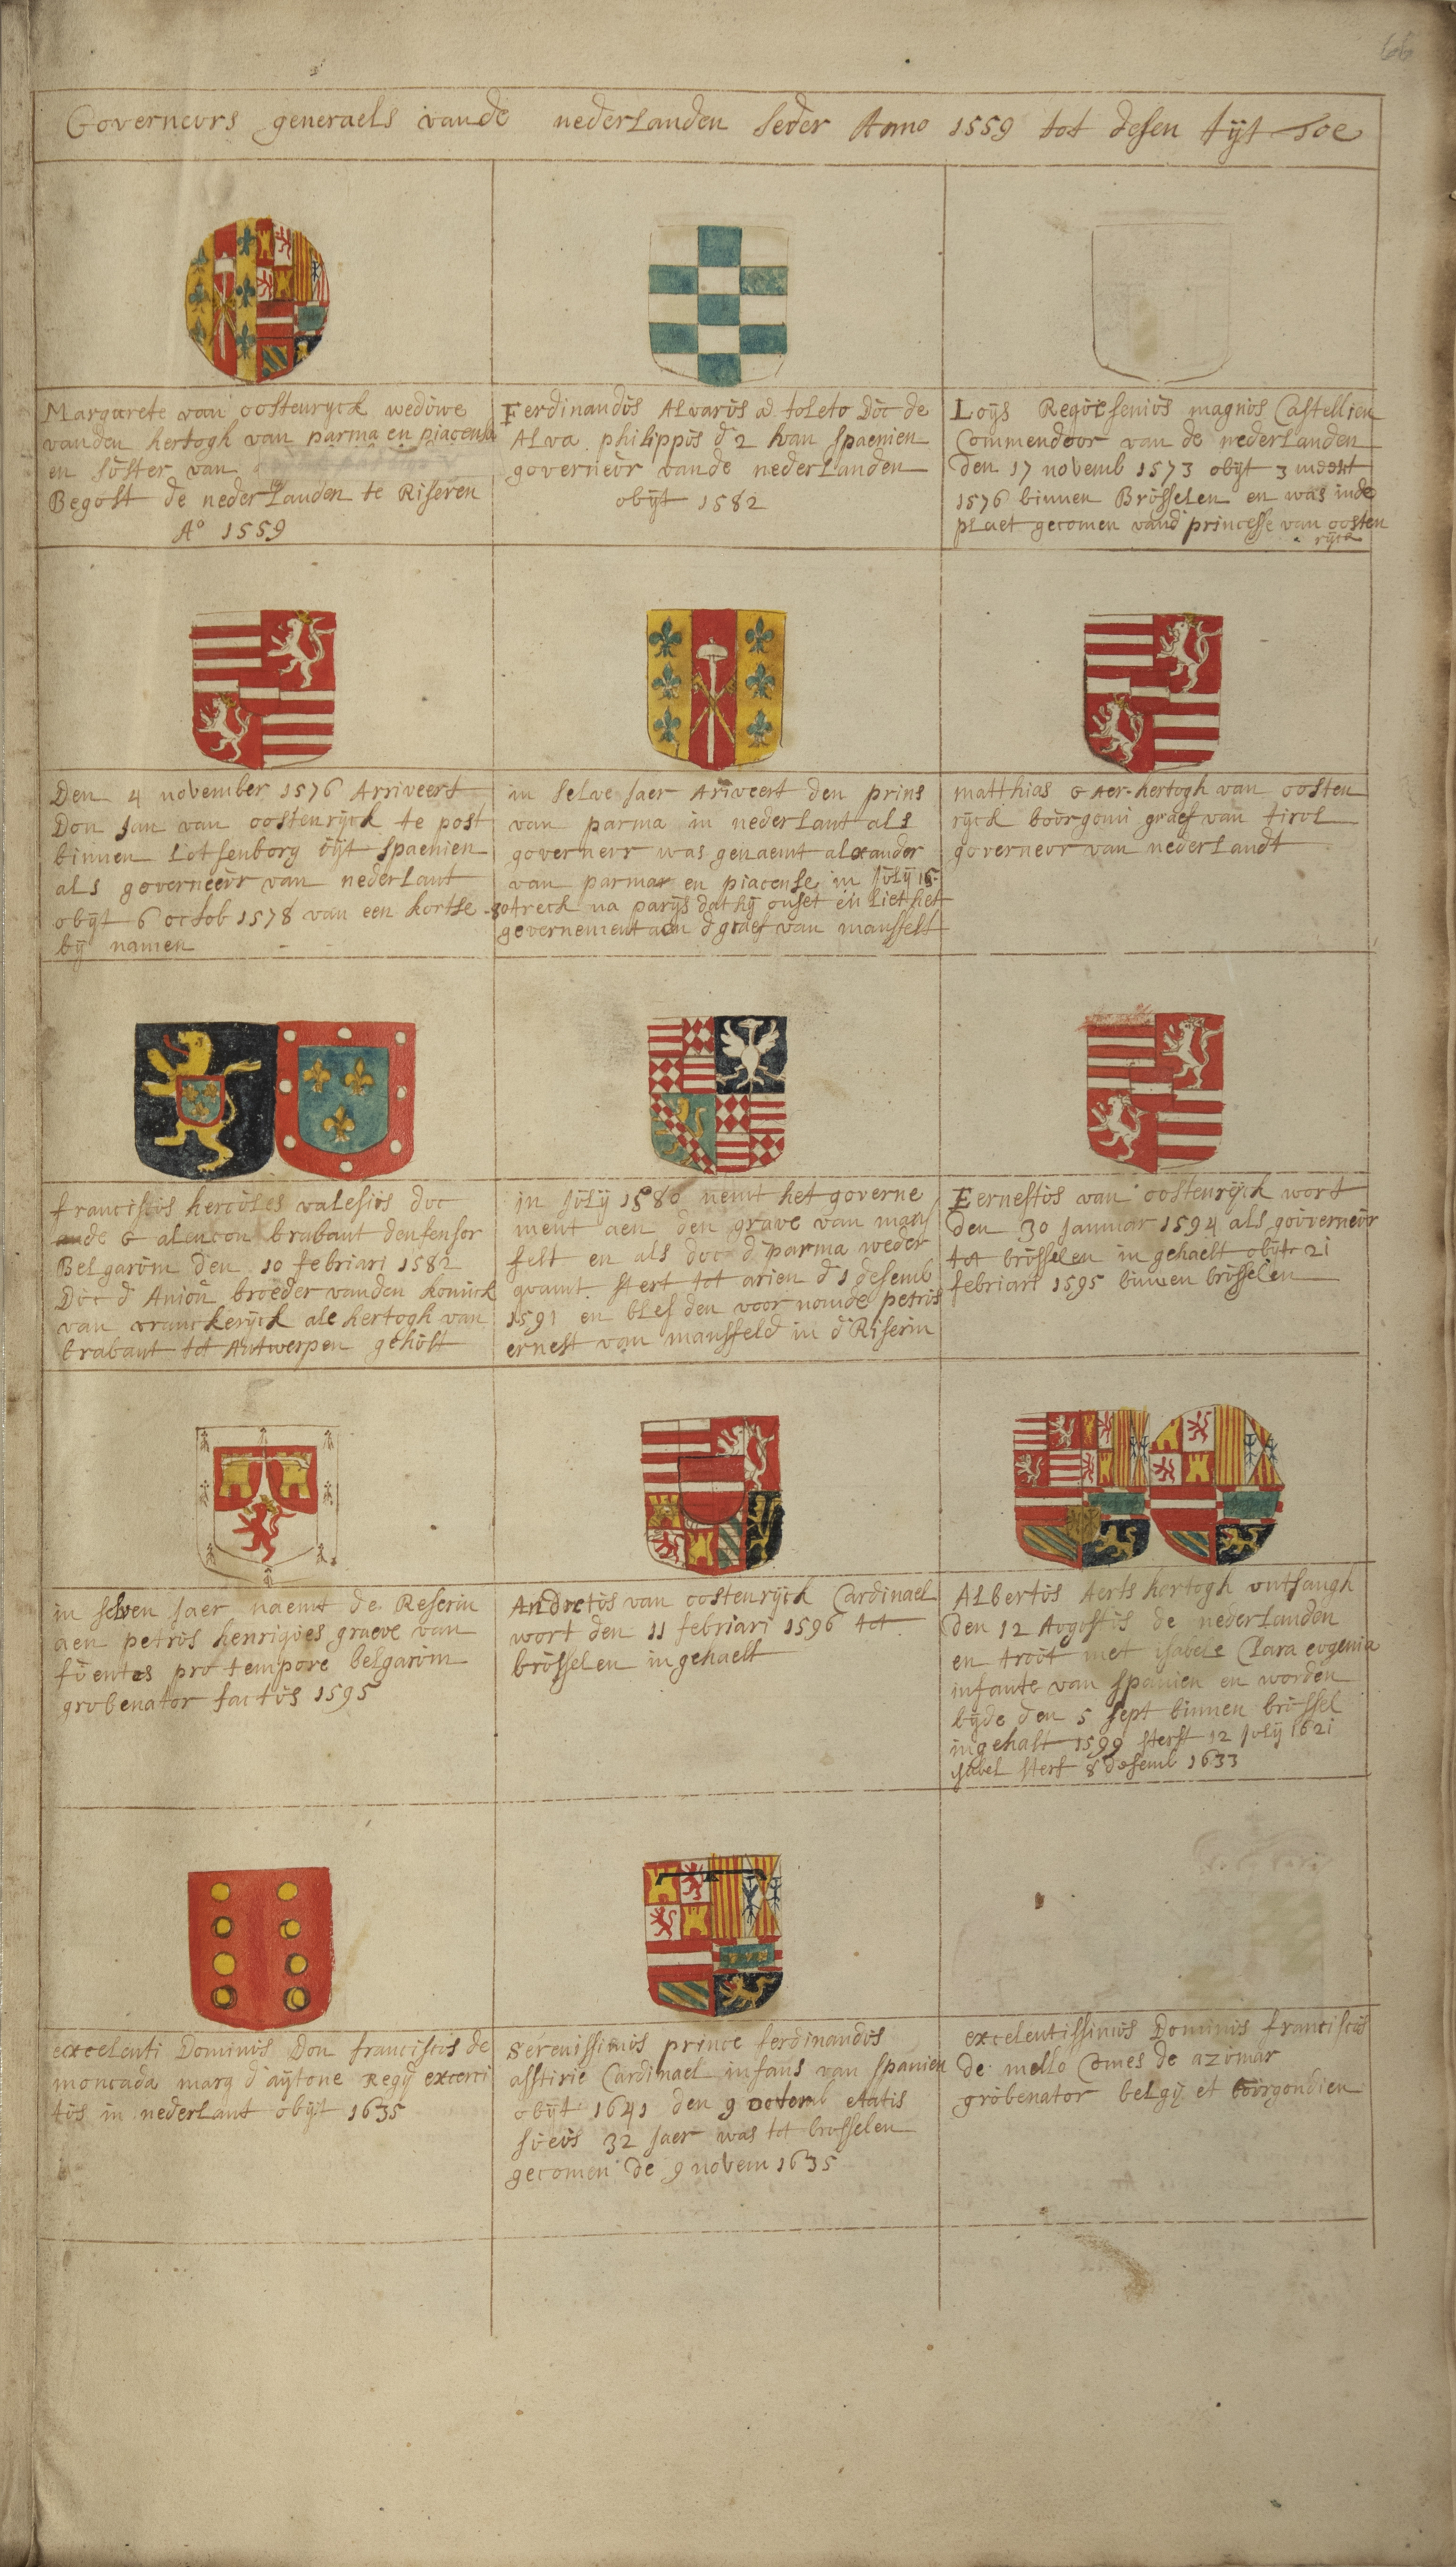 66
Governeurs generaels van de nederlanden seder Anno 1559 tot desen tijt toe
Margarete van oostenryck weduwe
vanden hertogh van parma en piacensa
en suster van
Begost de nederlanden te Riseren
A° 1559
Ferdinandus Alvarus a toleto Duc de
Alva philippus d 2 van spaenien
governeur vande nederlanden
obijt 1582
Loijs Requesenius magnus Castellien
Commendoor van de nederlanden
den 17 novemb 1573 obijt 3 meert
1576 binnen Brusselen en was inde
plaet gecomen vand princesse van oosten
rijck
Den 4 november 1576 Arriveert
Don Jan van oostenrijck te post
binnen Lutsenborg uijt spaenien
als governeeur van nederlant
obijt 6 octob 1578 van een kortse
bij namen
in selve jaer Ariveert den prins
van parma in nederlant als
governeur was genaemt alexander
van parma en piacense in july 15
80 treck na parijs dat hij onset en liet het
governement aen d graef van mansfelt
matthias Aer-hertogh van oosten
rijck bourgoni graef van tirol
governeur van nederlandt
franciscus hercules valesius duc
de alencon brabant deufensor
Belgarum den 10 februari 1582
Duc d Aniou broeder vanden koninck
van vranckerijck ale hertogh van
brabant tot Antwerpen gehult
in july 1580 nemt het governe
ment aen den grave van mans
felt en als duc d parma weder
quamt stert tot arien d 1 desemb
1591 en blef den voor nomde petrus
ernest van mansfeld in d Riserin
Eernestus van oostenrijck wort
den 30 januar 1594 als gouverneur
tot brusselen in gehaelt obijt 21
februari 1595 binnen brusselen
in selven jaer naemt de Reserin
aen petrus henriques graeve van
fuentes pro tempore belgarum
grobenator factus 1595
Andretus van oostenrijck Cardinael
wort den 11 februari 1596 tot
brusselen ingehaelt
Albertus Aerts hertogh ontfangh
den 12 Augustus de nederlanden
en trout met isabele Clara eugenia
infante van spanien en worden
bijde den 5 sept binnen brussel
ingehalt 1599 sterft 12 july 1621
isabel sterf 8 desemb 1633
excelenti Dominus Don franciscus de
moncada marq d'aijtone Regij exerci
tus in nederlant obijt 1635
Serenissimus prince ferdinandus
asstirie Cardinael infans van spanien
obijt 1641 den 9 octemb etatis
sueus 32 jaer was tot brusselen
gecomen de 9 novem 1635
excelentissimus Dominus franciscus
de mello Comes de azumar
grobenator belgij et borgondien